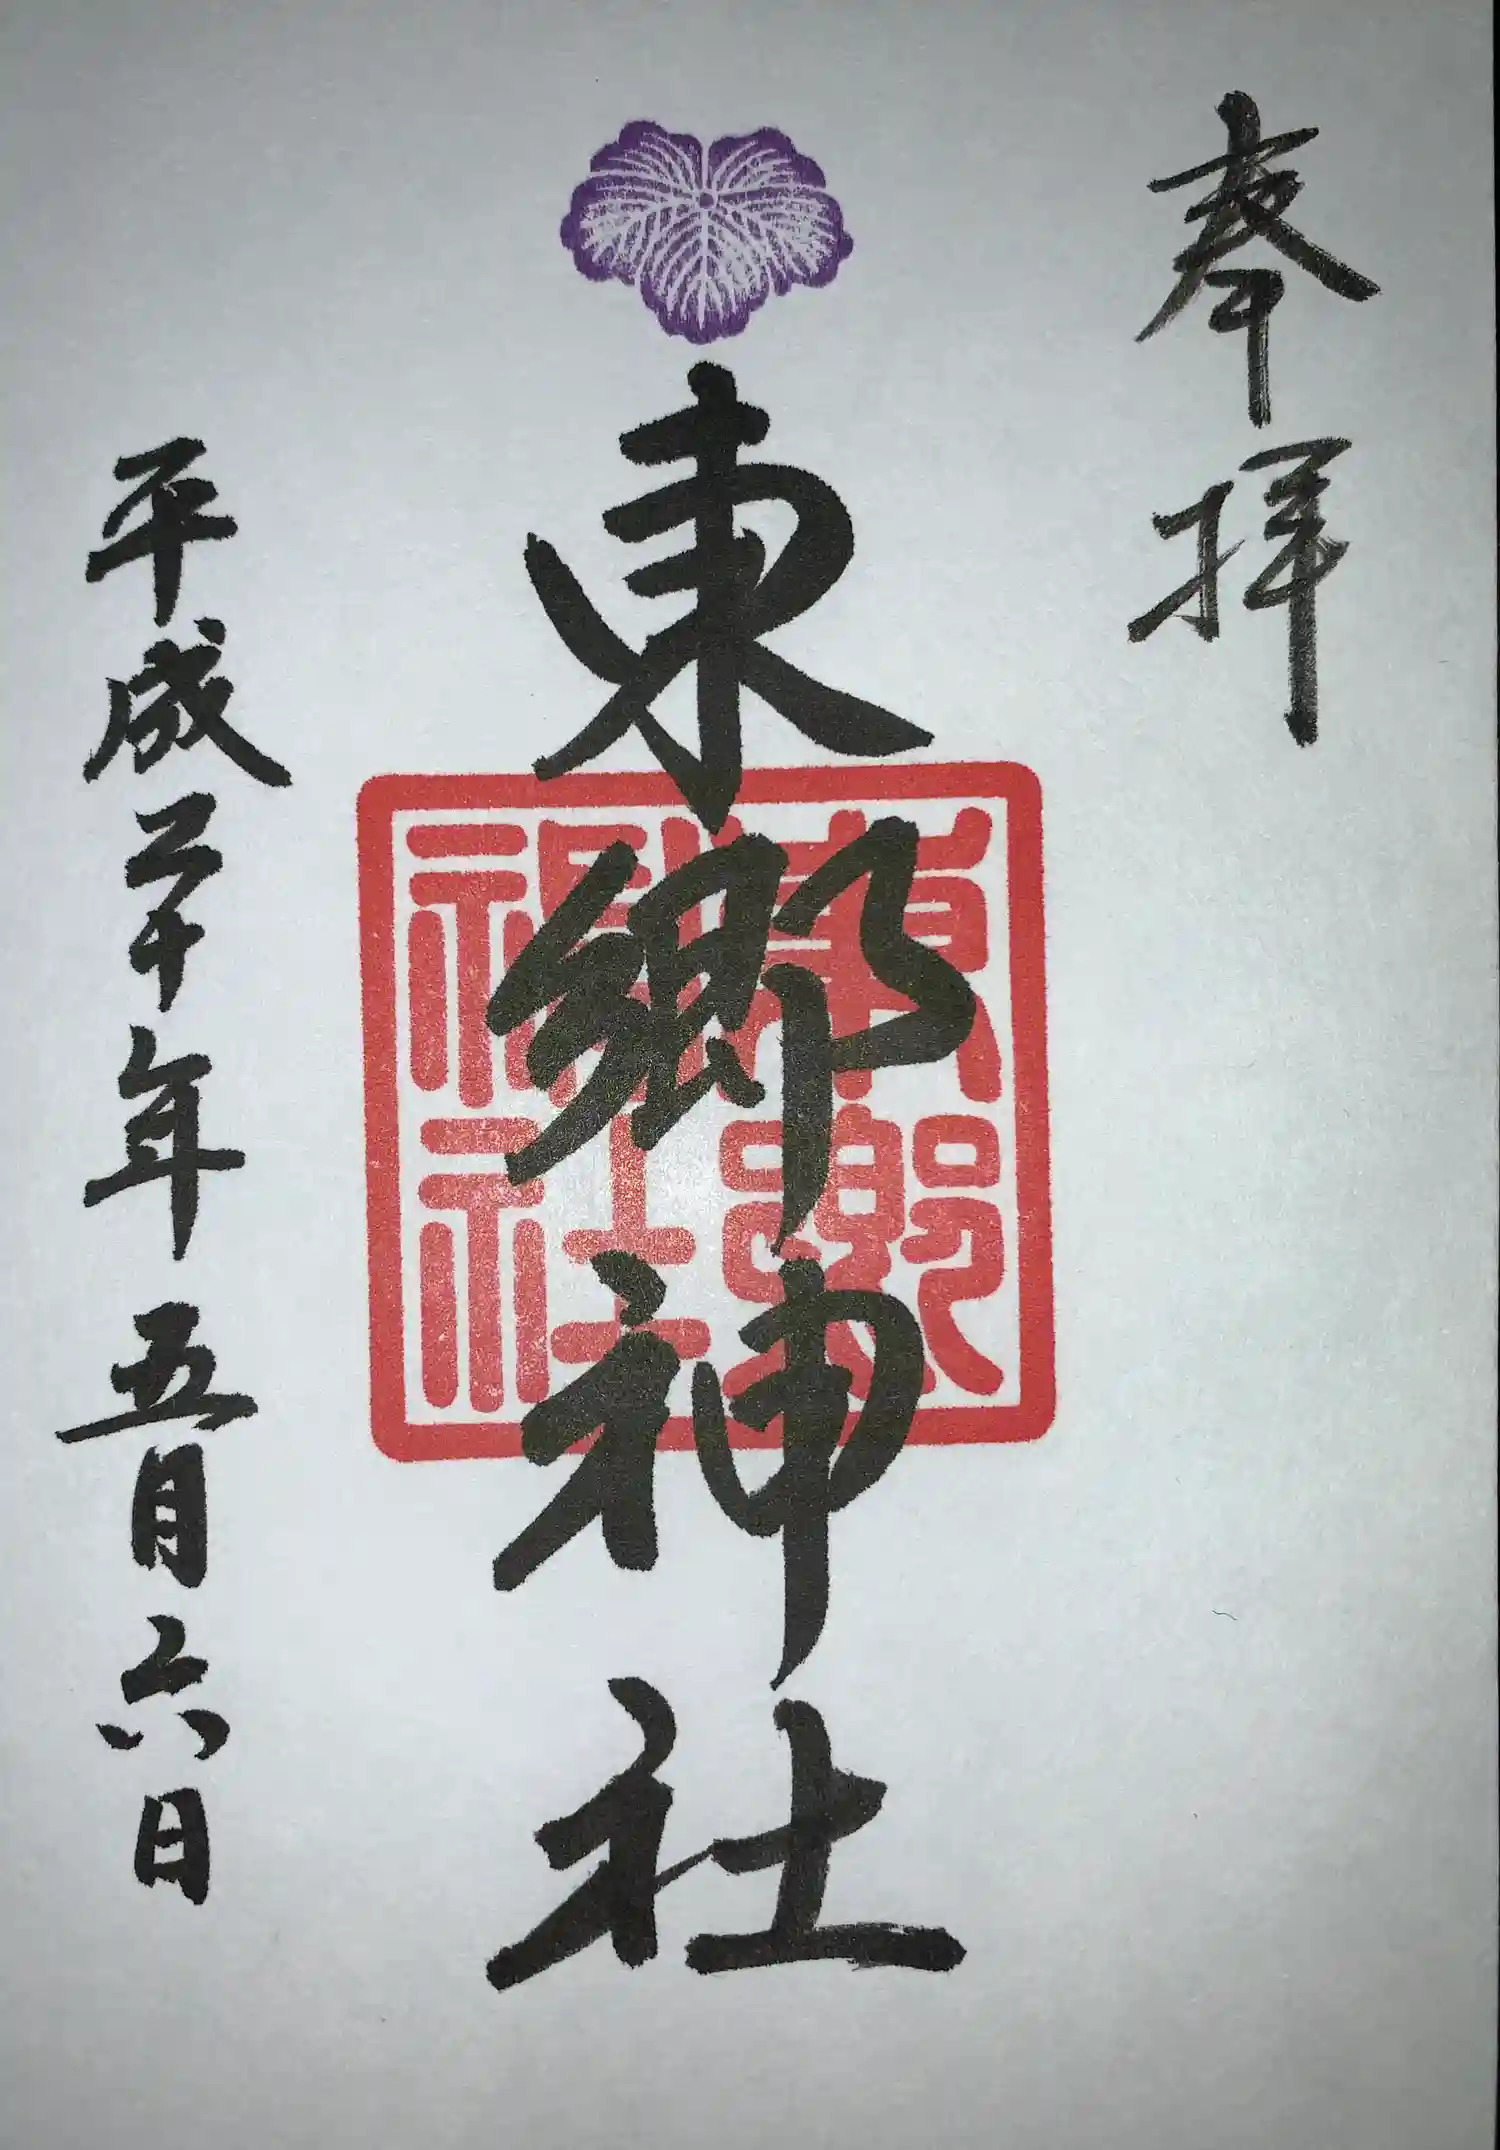 奉拝
東郷神社
東郷
神社
平成三十年五月六日